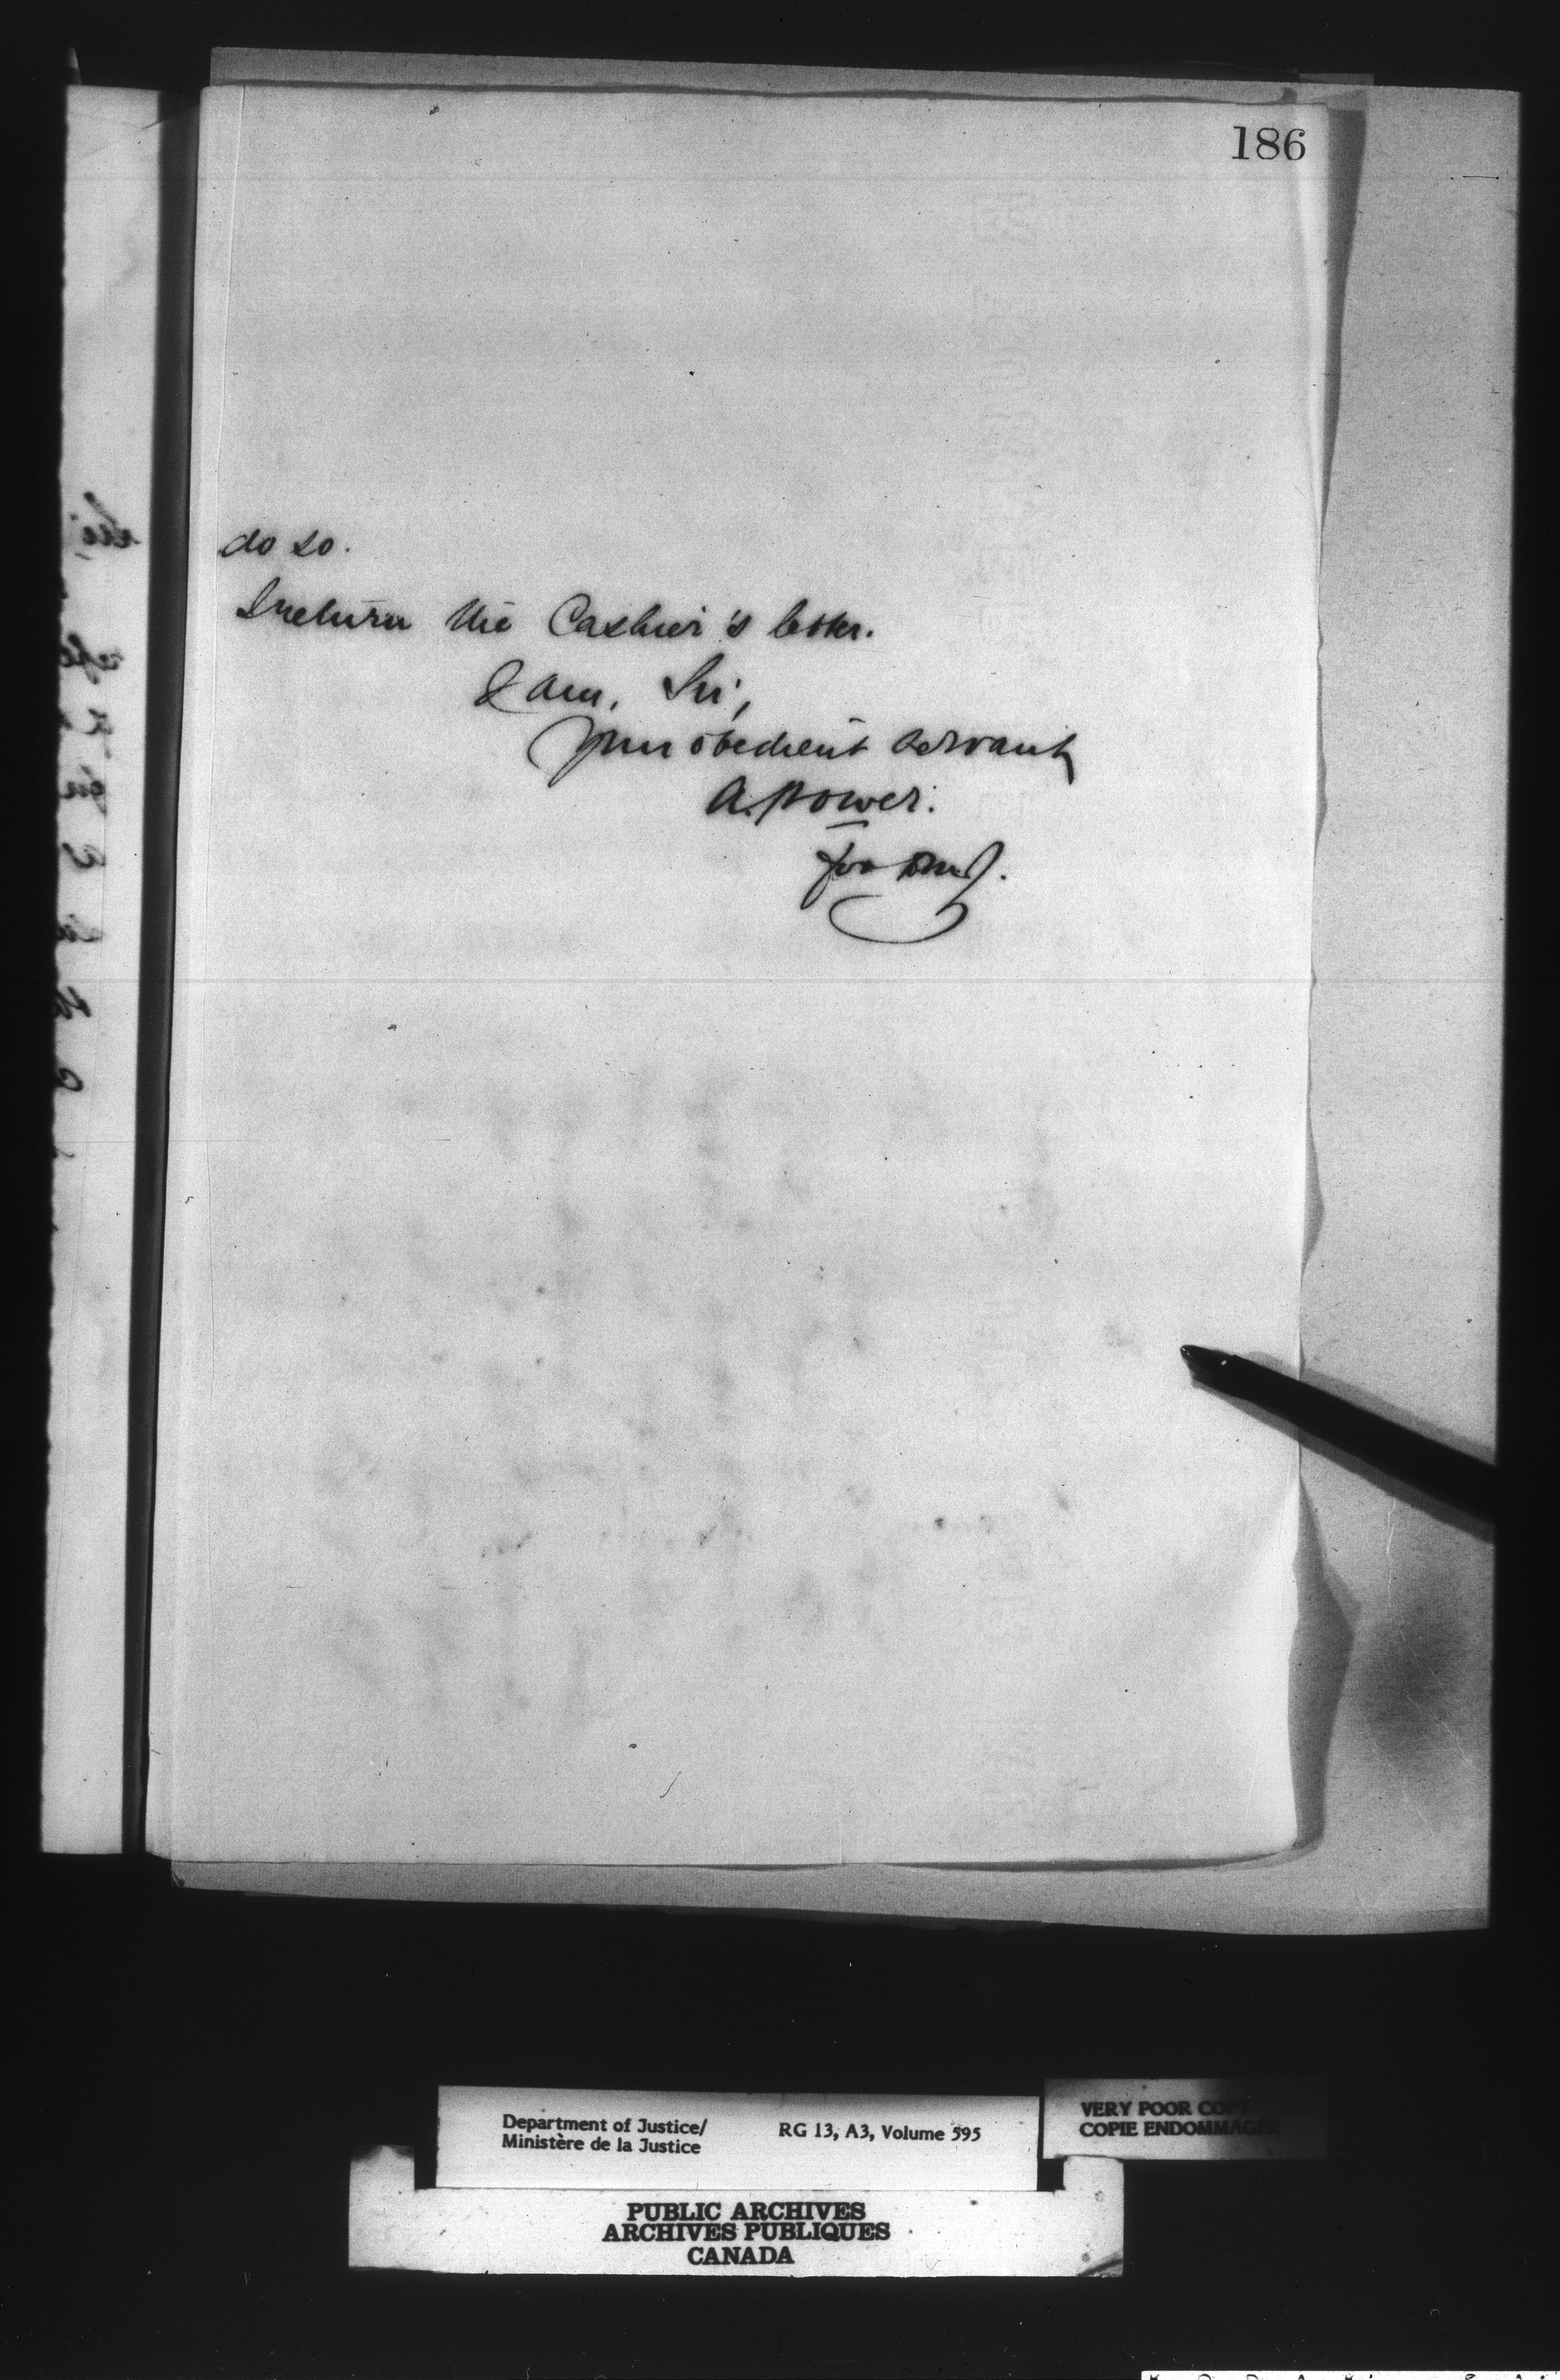 186
do so.
I return the Cashier's letter.
I am, Sir,
Your obedient servant
A. Power.
for D.M.J.
Department of Justice/
Ministère de la Justice
RG 13, A3, Volume 595
VERY POOR COPY
COPIE ENDOMMAGÉE
PUBLIC ARCHIVES
ARCHIVES PUBLIQUES
CANADA